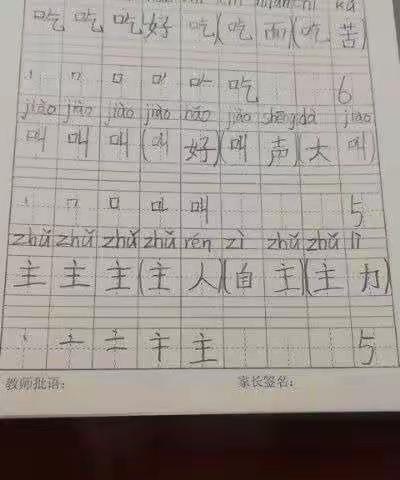 吃 吃 吃 好 吃(吃 面(吃 苦)
口 吃 6
jiào jiào jiào jiào hǎo jiào shēng dà jiào
叫 叫 叫 (叫 好)(叫 声)(大 叫)
口 叫 5
zhǔ zhǔ zhǔ zhǔ rén zì zhǔ zhǔ lì
主 主 主(主 人)(自 主)(主 力)
主 5
教师批语: 家长签名: